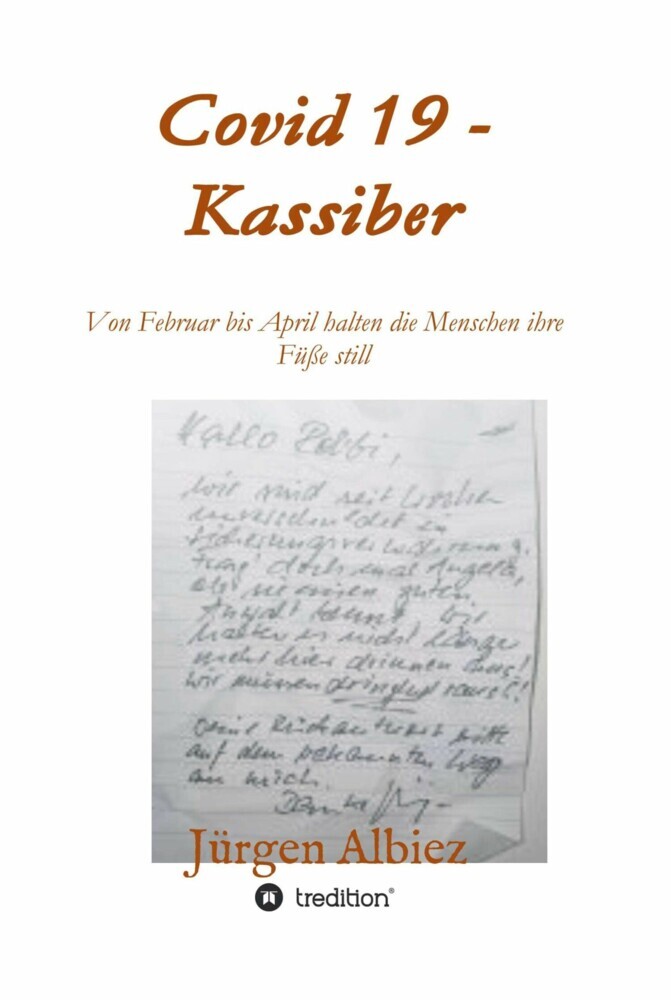 Covid 19 -
Kassiber
Von Februar bis April halten die Menschen ihre
Füße still
Hallo Bobbi,
wir sind seit Wochen
unverschuldet in
Sicherungsverwahrung.
Frag doch mal Angela,
ob sie einen guten
Anwalt kennt. Wir
halten es nicht länger
mehr hier drinnen aus!
Wir müssen dringend raus!!
Deine Rückantwort bitte
auf dem bekannten Weg
an mich.
Danke
Jürgen Albiez
tredition®